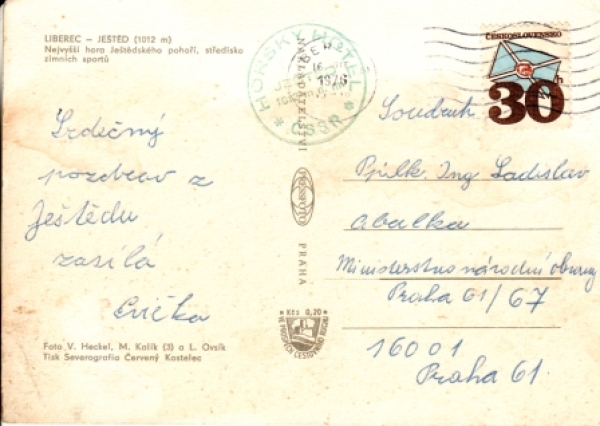 LIBEREC – JEŠTĚD (1012 m)
Nejvyšší hora Ještědského pohoří, středisko
zimních sportů
Srdečný
pozdrav z
Ještědu
zasílá
Foto V. Heckel, M. Kolík (3) a L. Ovsík
Tisk Severografia Červený Kostelec
HORSKÝ HOTEL
ČSSR
1976
NAKLADATELSTVÍ
PRAHA
Kčs 0,20
VE PROSPĚCH CESTOVNÍHO RUCHU
ČESKOSLOVENSKO
30 h
Soudruh
Pplk. Ing Ladislav
Abalka
Ministerstvo národní obrany
Praha 61/67
16001
Praha 61.